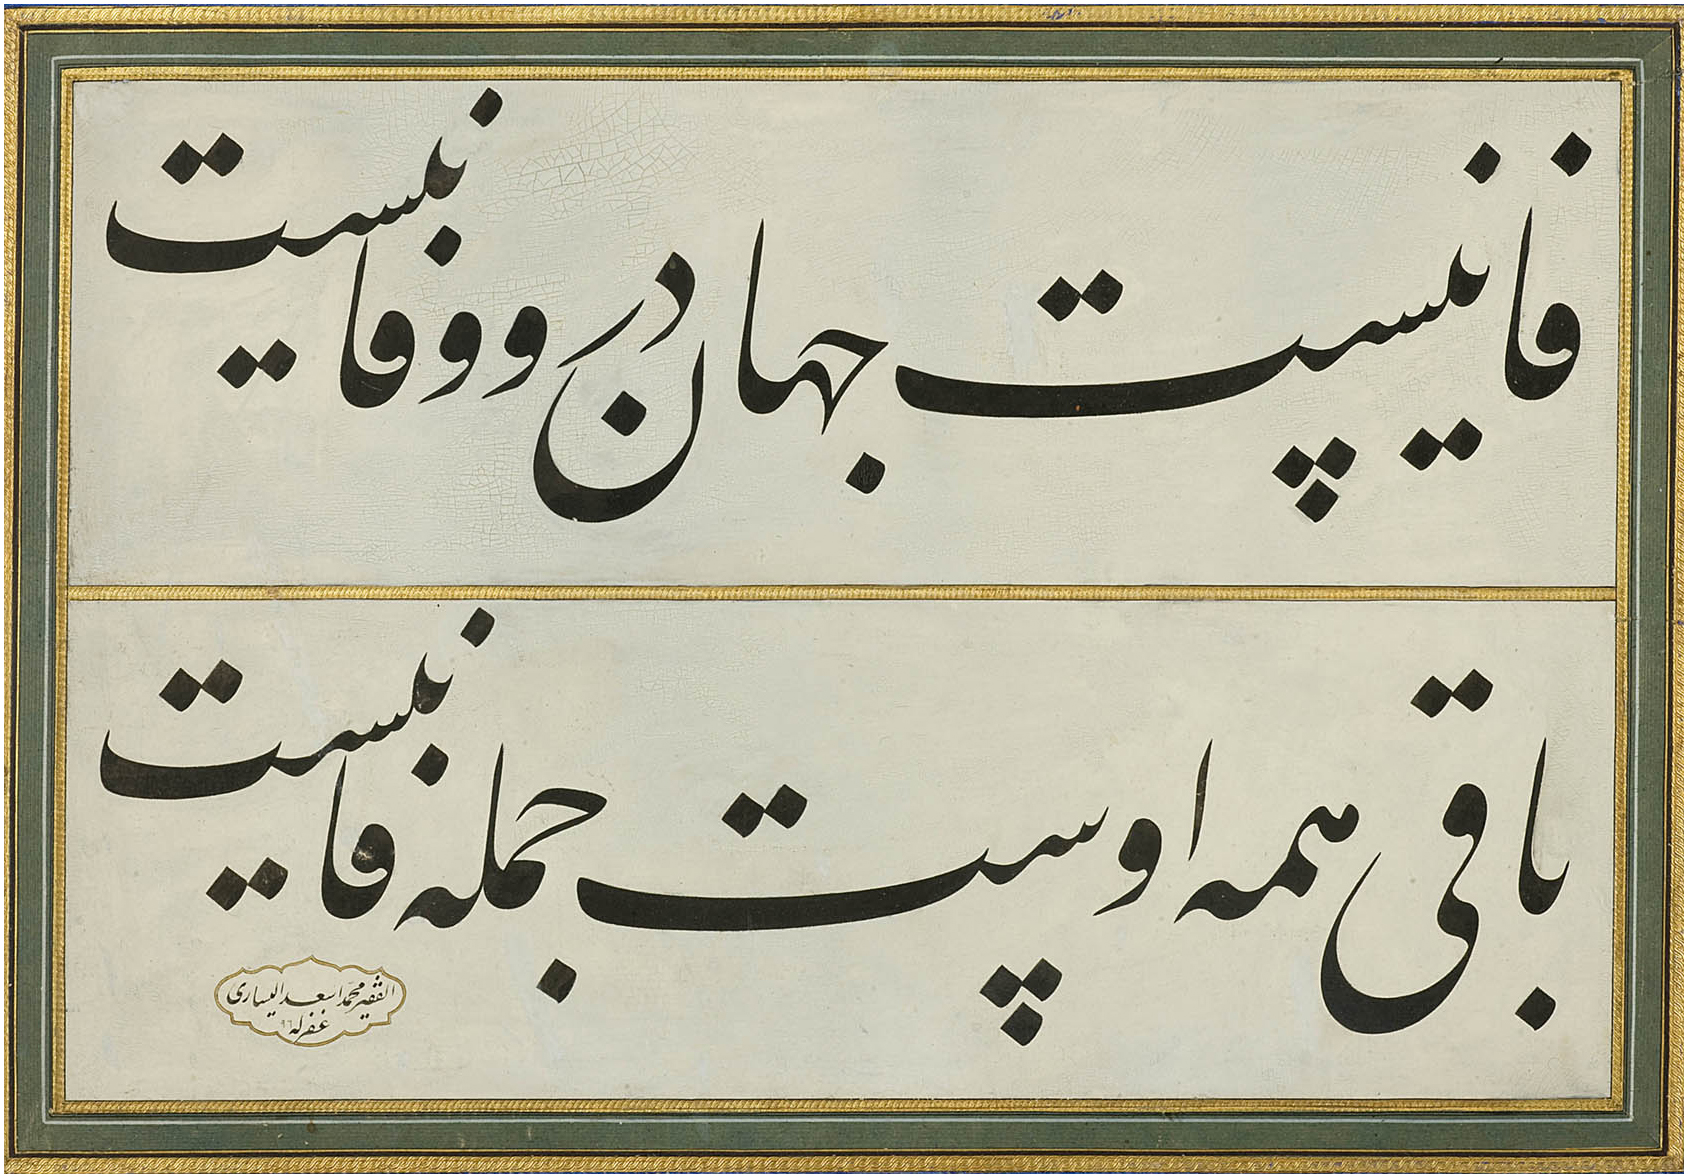 فانیست جهان درو وفا نیست
باقی همه اوست جمله فانیست
الفقير محمد اسعد اليسارى
غفر له ٩٦